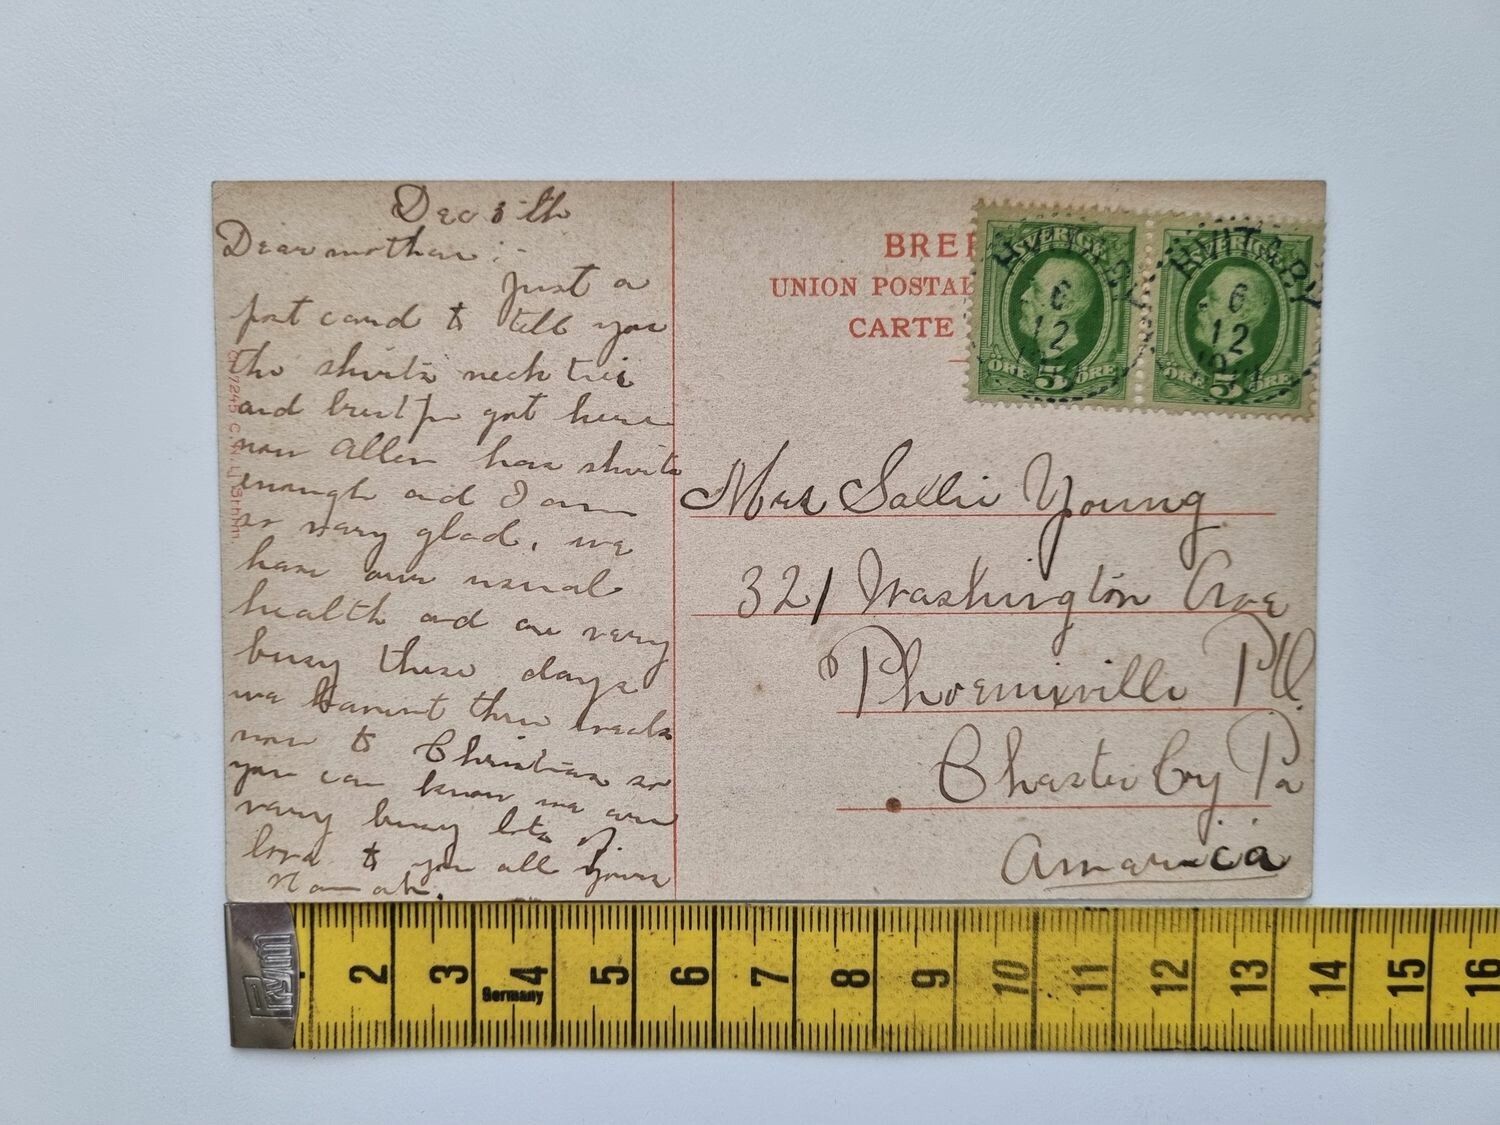 Dec 5th
Dear mother :-
Just a
post card to tell you
the shirts neck ties
and got here
now Allen has shirts
enough and I am
so very glad, we
have our usual
health and are very
busy these days
we havent three weeks
now to Christmas so
you can know we are
very busy lots of
love to you all yours
BREF
UNION POSTAL
CARTE
SVERIGE
5 ÖRE ÖRE
HVITABY
6
12
SVERIGE
5 ÖRE ÖRE
HVITABY
6
12
Mrs Sallie Young
321 Washington Ave
Phoenixville Pa.
Chester Coy Pa
America
Prym
Germany
2 3 4 5 6 7 8 9 10 11 12 13 14 15 16